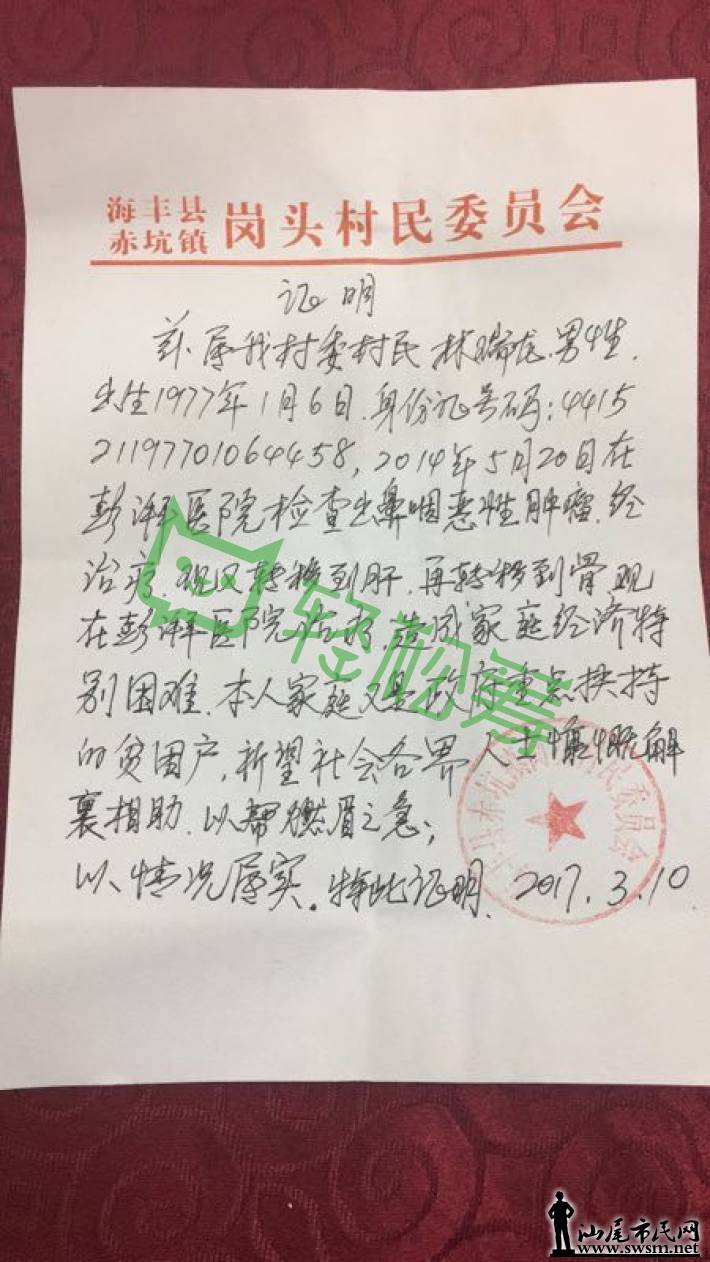 海丰县
赤坑镇 岗头村民委员会
证明
兹属我村委村民林瑞龙,男性,
出生1977年1月6日.身份证号码:4415
21197701064458,2014年5月20日在
彭湃医院检查出鼻咽恶性肿瘤.经
治疗,现又转移到肝,再转移到骨现
在彭湃医院治疗,造成家庭经济特
别困难.本人家庭又是政府重点扶持
的贫困户,祈望社会各界人士慷慨解
囊捐助.以帮燃眉之急;
以情况属实。特此证明.2017.3.10
轻松筹
汕尾市民网
www.swsm.net